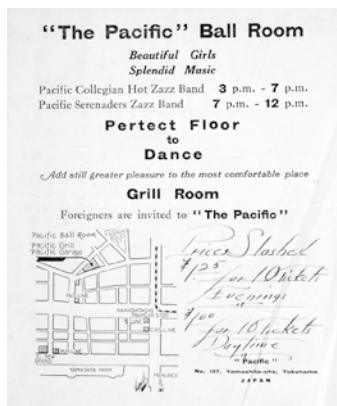 “The Pacific” Ball Room
Beautiful Girls
Splendid Music
Pacific Collegian Hot Zazz Band 3 p.m. - 7 p.m.
Pacific Serenaders Zazz Band 7 p.m. - 12 p.m.
Pertect Floor
to
Dance
Add still greater pleasure to the most comfortable place
Grill Room
Foreigners are invited to “The Pacific”
Pacific Ball Room
Pacific Grill
Pacific Garage
Yamashita Park
Prices Slashed
$1.25
for 10 tickets
Evenings
$1.00
for 10 tickets
Daytime
“Pacific”
No. 137, Yamashita-cho, Yokohama
JAPAN